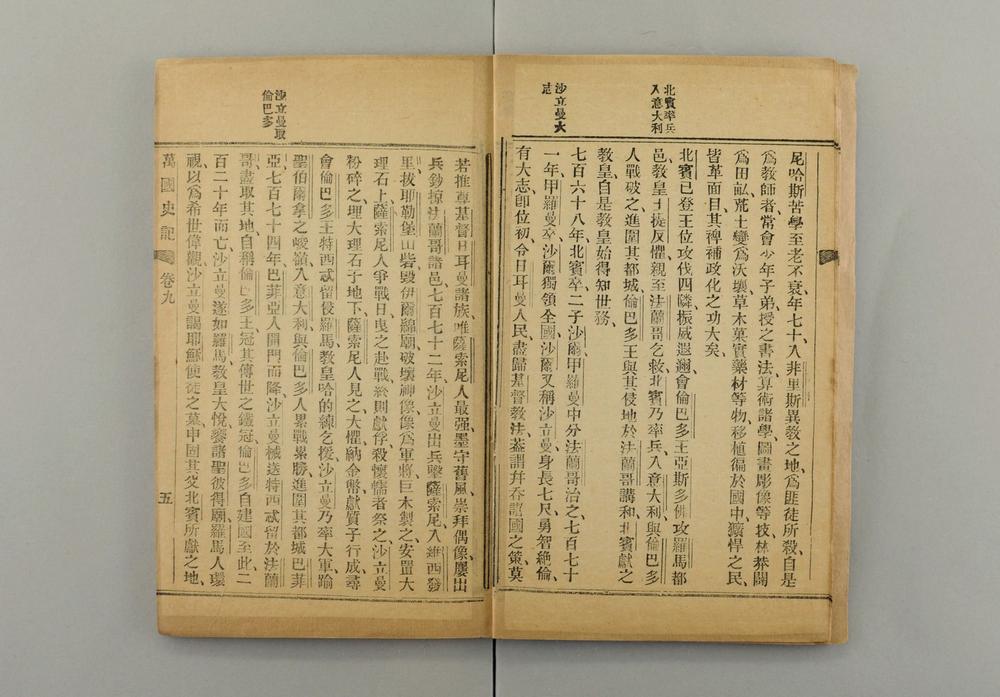 北賓率兵
入意大利
沙立曼大
志
尼哈斯苦學至老不衰年七十入非里斯異教之地爲匪徒所殺自是
爲教師者常會少年子弟授之書法算術諸學圖畫彫像等技林莽闢
爲田畝荒土變爲沃壤草木菓實藥材等物移植徧於國中獷悍之民
皆革面目其裨補政化之功大矣
北賓已登王位攻伐四隣振威遐邇會倫巴多王亞斯多佛攻羅馬都
邑教皇士提反懼親至法蘭哥乞救北賓乃率兵入意大利與倫巴多
人戰破之進圍其都城倫巴多王與其侵地於法蘭哥講和北賓獻之
教皇自是教皇始得知世務
七百六十八年北賓卒二子沙爾甲羅曼中分法蘭哥治之七百七十
一年甲羅曼卒沙爾獨領全國沙爾又稱沙立曼身長七尺勇智絶倫
有大志卽位初令日耳曼人民盡歸基督教法葢謂幷呑諸國之策莫
沙立曼取
倫巴多
若推尊基督日耳曼諸族唯薩索尼人最强墨守舊風崇拜偶像屢出
兵鈔掠法蘭哥諸邑七百七十二年沙立曼出兵擊薩索尼入維西發
里拔耶勒堡山砦毀伊爾綿廟破壞神像像爲軍將巨木製之安置大
理石上薩索尼人爭戰日曳之赴戰終則獻俘殺懷懦者祭之沙立曼
粉碎之埋大理石子地下薩索尼人見之大懼納金幣獻質子行成尋
會倫巴多王特西忒留侵羅馬教皇哈的練乞援沙立曼乃率大軍踰
聖伯爾拿之峻嶺入意大利與倫巴多人累戰累勝進圍其都城巴菲
亞七百七十四年巴菲亞人開門而降沙立曼械送特西忒留於法蘭
哥盡取其地自稱倫巴多王冠其傳世之鐵冠倫巴多自建國至此二
百二十年而亡沙立曼遂如羅馬教皇大悅饗諸聖彼得廟羅馬人環
視以爲希世偉觀沙立曼謁耶穌使徒之墓申固其父北賓所獻之地
萬國史記 卷九 五